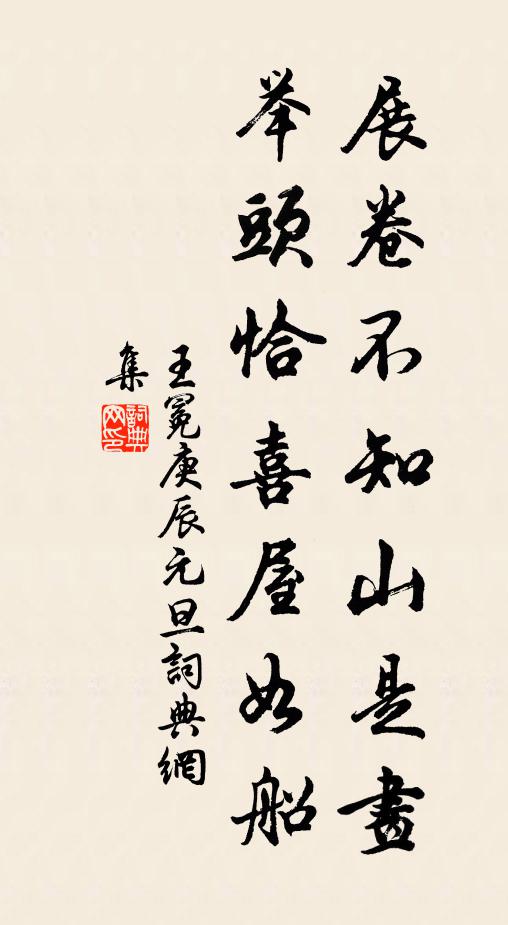 展卷不知山是畫
举頭恰喜屋如船
王冕庚辰元旦詞典網
集
詞典
网印